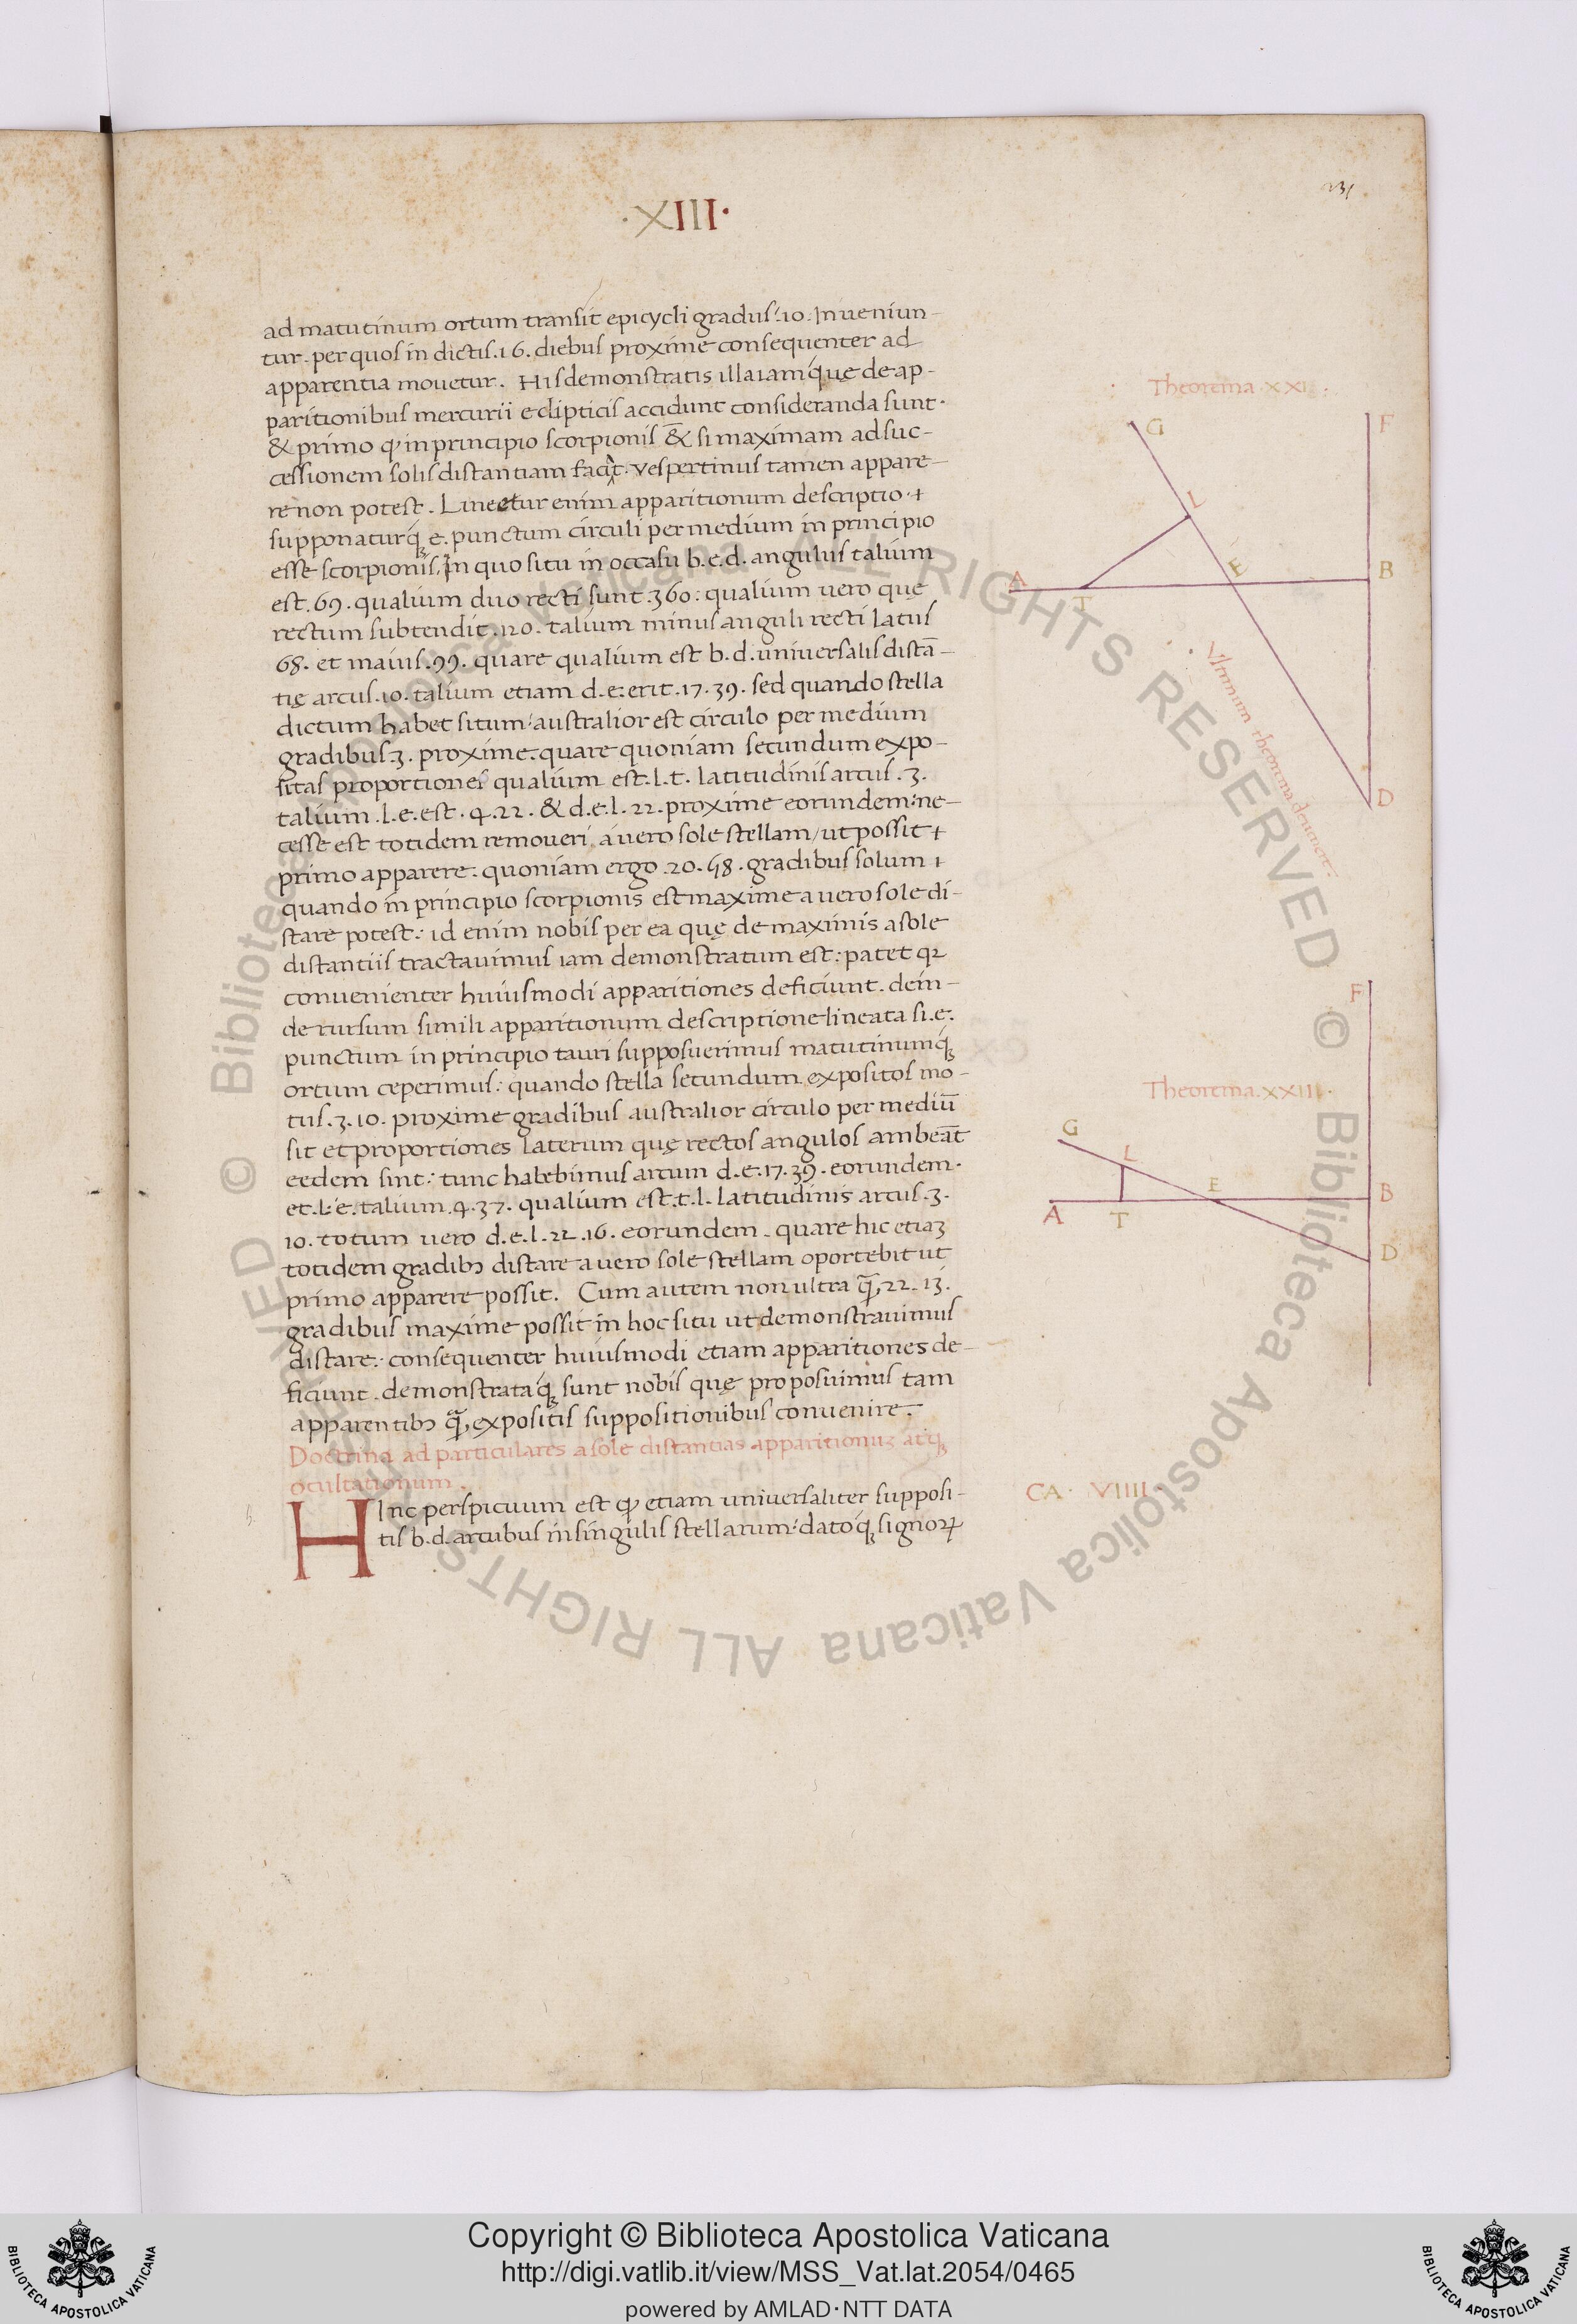 ·XIII·
231
ad matutinum ortum transit epicycli gradus·10· Inueniun-
tur· per quos in dictis·16· diebus proxime consequenter ad
apparentia mouetur. His demonstratis illa iam quę de ap-
paritionibus mercurii eclipticis accidunt consideranda sunt·
& primo ꝙ in principio scorpionis & si maximam ad suc-
cessionem solis distantiam faciat· vespertinus tamen appare-
re non potest. Lineetur enim apparitionum descriptio·
supponaturqꝫ e· punctum circuli per medium in principio
esse scorpionis, In quo situ in occasu b.e.d. angulus talium
est·69· qualium duo recti sunt·360: qualium uero quę
rectum subtendit·120· talium minus anguli recti latus
68· et maius·99· quare qualium est b.d. uniuersalis distā-
tię arcus·10· talium etiam d.e. erit·17·39· sed quando stella
dictum habet situm: australior est circulo per medium
gradibus·3· proxime· quare quoniam secundum expo-
sitas proportiones qualium est·l.t. latitudinis arcus·3·
talium·l.e. est·4·22· & d.e.l·22· proxime eorundem: ne-
cesse est totidem remoueri a uero sole stellam/ ut possit
primo apparere: quoniam ergo·20·58· gradibus solum
quando in principio scorpionis est maxime a uero sole di-
stare potest: id enim nobis per ea quę de maximis a sole
distantiis tractauimus iam demonstratum est: patet qꝛ
conuenienter huiusmodi apparitiones deficiunt· dein-
de rursum simili apparitionum descriptione lineata si·e·
punctum in principio tauri supposuerimus matutinumqꝫ
ortum ceperimus: quando stella secundum expositos mo-
tus·3·10· proxime gradibus australior circulo per mediū
sit et proportiones laterum quę rectos angulos ambeāt
eędem sint: tunc habebimus arcum d.e·17·39· eorundem·
et·l.e· talium·4·37· qualium est·t.l· latitudinis arcus·3·
10· totum uero d.e.l·22·16· eorundem· quare hic etiaꝫ
totidem gradibꝰ distare a uero sole stellam oportebit ut
primo apparere possit. Cum autem non ultra ꝗ̄·22·13·
gradibus maxime possit in hoc situ ut demonstrauimus
distare: consequenter huiusmodi etiam apparitiones de-
ficiunt· demonstrataqꝫ sunt nobis quę proposuimus tam
apparentibꝰ ꝗ̄ expositis suppositionibus conuenire·
Doctrina ad particulares a sole distantias apparitionuꝫ atqꝫ
ocultationum·
CA· VIIII·
HInc perspicuum est ꝙ etiam uniuersaliter supposi-
tis b.d. arcubus in singulis stellarum: datoqꝫ signoꝝ
Theorema·XXI·
G
F
L
A
T
E
B
D
F
Theorema·XXIII·
G
L
E
B
A
T
D
Copyright © Biblioteca Apostolica Vaticana
http://digi.vatlib.it/view/MSS_Vat.lat.2054/0465
powered by AMLAD·NTT DATA
BIBLIOTECA APOSTOLICA VATICANA
BIBLIOTECA APOSTOLICA VATICANA
© Biblioteca Apostolica Vaticana ALL RIGHTS RESERVED
© Biblioteca Apostolica Vaticana ALL RIGHTS RESERVED